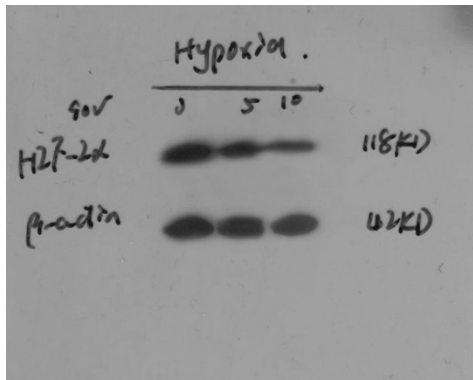 Hypoxia.
0 5 10
HIF-2α 118KD
β-actin 42KD